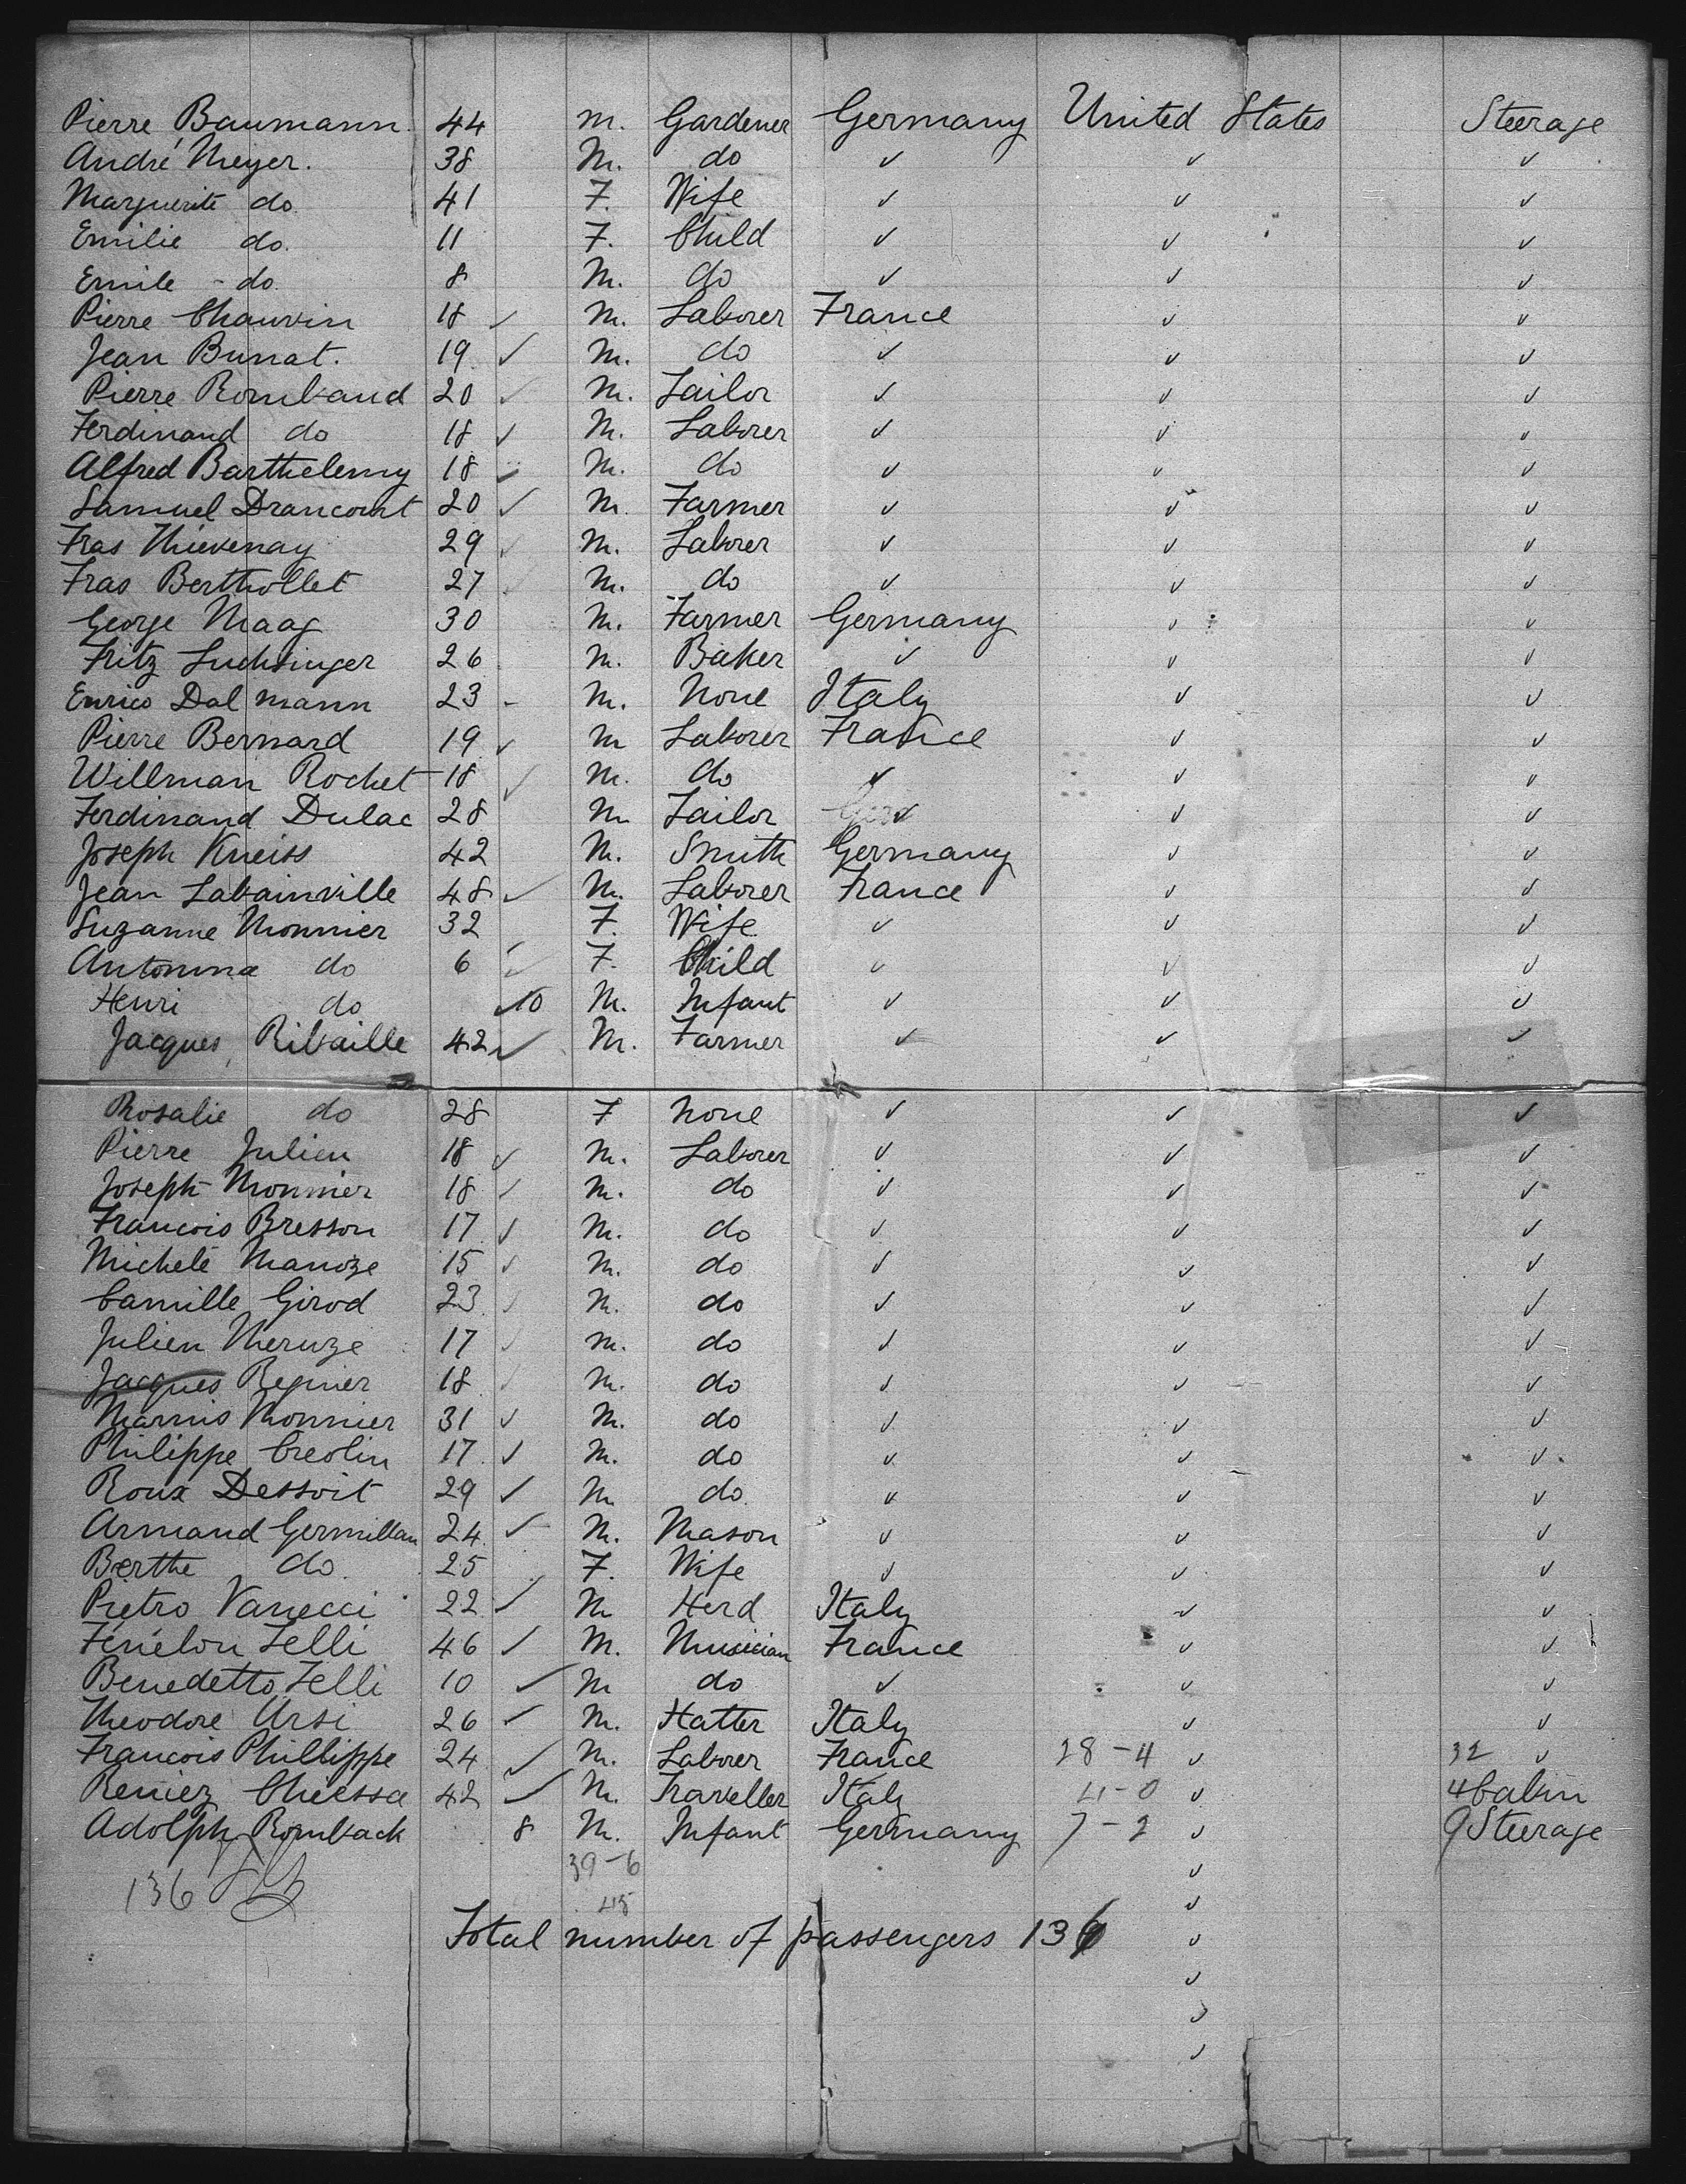 Pierre Baumann. 44 M. Gardener Germany United States Steerage
André Meyer. 38 M. do ✓ ✓ ✓
Marguerite do. 41 F. Wife ✓ ✓ ✓
Emilie do. 11 F. Child ✓ ✓ ✓
Emile - do. 8 M. do ✓ ✓ ✓
Pierre Chauvin 18 ✓ M. Laborer France ✓ ✓
Jean Bunat. 19 ✓ M. do ✓ ✓ ✓
Pierre Rombaud 20 ✓ M. Tailor ✓ ✓ ✓
Ferdinand do 18 ✓ M. Laborer ✓ ✓ ✓
Alfred Barthelemy 18 ✓ M. do ✓ ✓ ✓
Samuel Drancourt 20 ✓ M. Farmer ✓ ✓ ✓
Fras Thievenay 29 ✓ M. Laborer ✓ ✓ ✓
Fras Berthollet 27 ✓ M. do ✓ ✓ ✓
George Maag 30 M. Farmer Germany ✓ ✓
Fritz Luchsinger 26 M. Baker ✓ ✓ ✓
Enrico Dal mann 23 - M. None Italy ✓ ✓
Pierre Bernard 19 ✓ M Laborer France ✓ ✓
Willman Rochet 18 ✓ M. do ✓ ✓ ✓
Ferdinand Dulac 28 M Tailor ✓ ✓ ✓
Joseph Kneiss 42 M. Smith Germany ✓ ✓
Jean Labainville 48 ✓ M. Laborer France ✓ ✓
Suzanne Monnier 32 F. Wife ✓ ✓ ✓
Antonina do 6 ✓ F. Child ✓ ✓ ✓
Henri do ✓ 10 M. Infant ✓ ✓ ✓
Jacques Ribaille 42 ✓ M. Farmer ✓ ✓ ✓
Rosalie do 28 F None ✓ ✓ ✓
Pierre Julien 18 ✓ M. Laborer ✓ ✓ ✓
Joseph Monnier 18 ✓ M. do ✓ ✓ ✓
Francois Bresson 17 ✓ M. do ✓ ✓ ✓
Michele 15 ✓ M. do ✓ ✓ ✓
Camille Girod 23 ✓ M. do ✓ ✓ ✓
Julien 17 ✓ M. do ✓ ✓ ✓
Jacques Regnier 18 ✓ M. do ✓ ✓ ✓
Monnier 31 ✓ M. do ✓ ✓ ✓
Philippe Creolin 17 ✓ M. do ✓ ✓ ✓
Roux Dessoit 29 ✓ M do. ✓ ✓ ✓
Armand 24 ✓ M. Mason ✓ ✓ ✓
Berthe do. 25 F. Wife ✓ ✓ ✓
Pietro Vanecci 22 ✓ M Herd Italy ✓ ✓
Fénélon Zelli 46 ✓ M. Musician France ✓ ✓
Benedetto Zelli 10 ✓ M do ✓ ✓ ✓
Theodore Ursi 26 ✓ M. Hatter Italy ✓ ✓
Francois Phillippe 24 ✓ M. Laborer France 28-4 ✓ 32 ✓
Reniez Chiessa 42 ✓ M. Traveller Italy 4-0 ✓ 4 Cabin
Adolph Romback 8 M. Infant Germany 7-2 ✓ 9 Steerage
39-6 ✓
136
45 ✓
Total number of passengers 136 ✓
✓
✓
✓